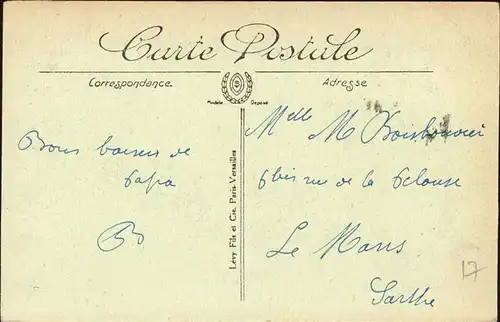 Carte Postale
Correspondance
Adresse
Modèle Déposé
Bons baisers de
Papa
B
Lévy Fils et Cie, Paris-Versailles
Mlle M
6 bis rue de la Pelouse
Le Mans
Sarthe
17